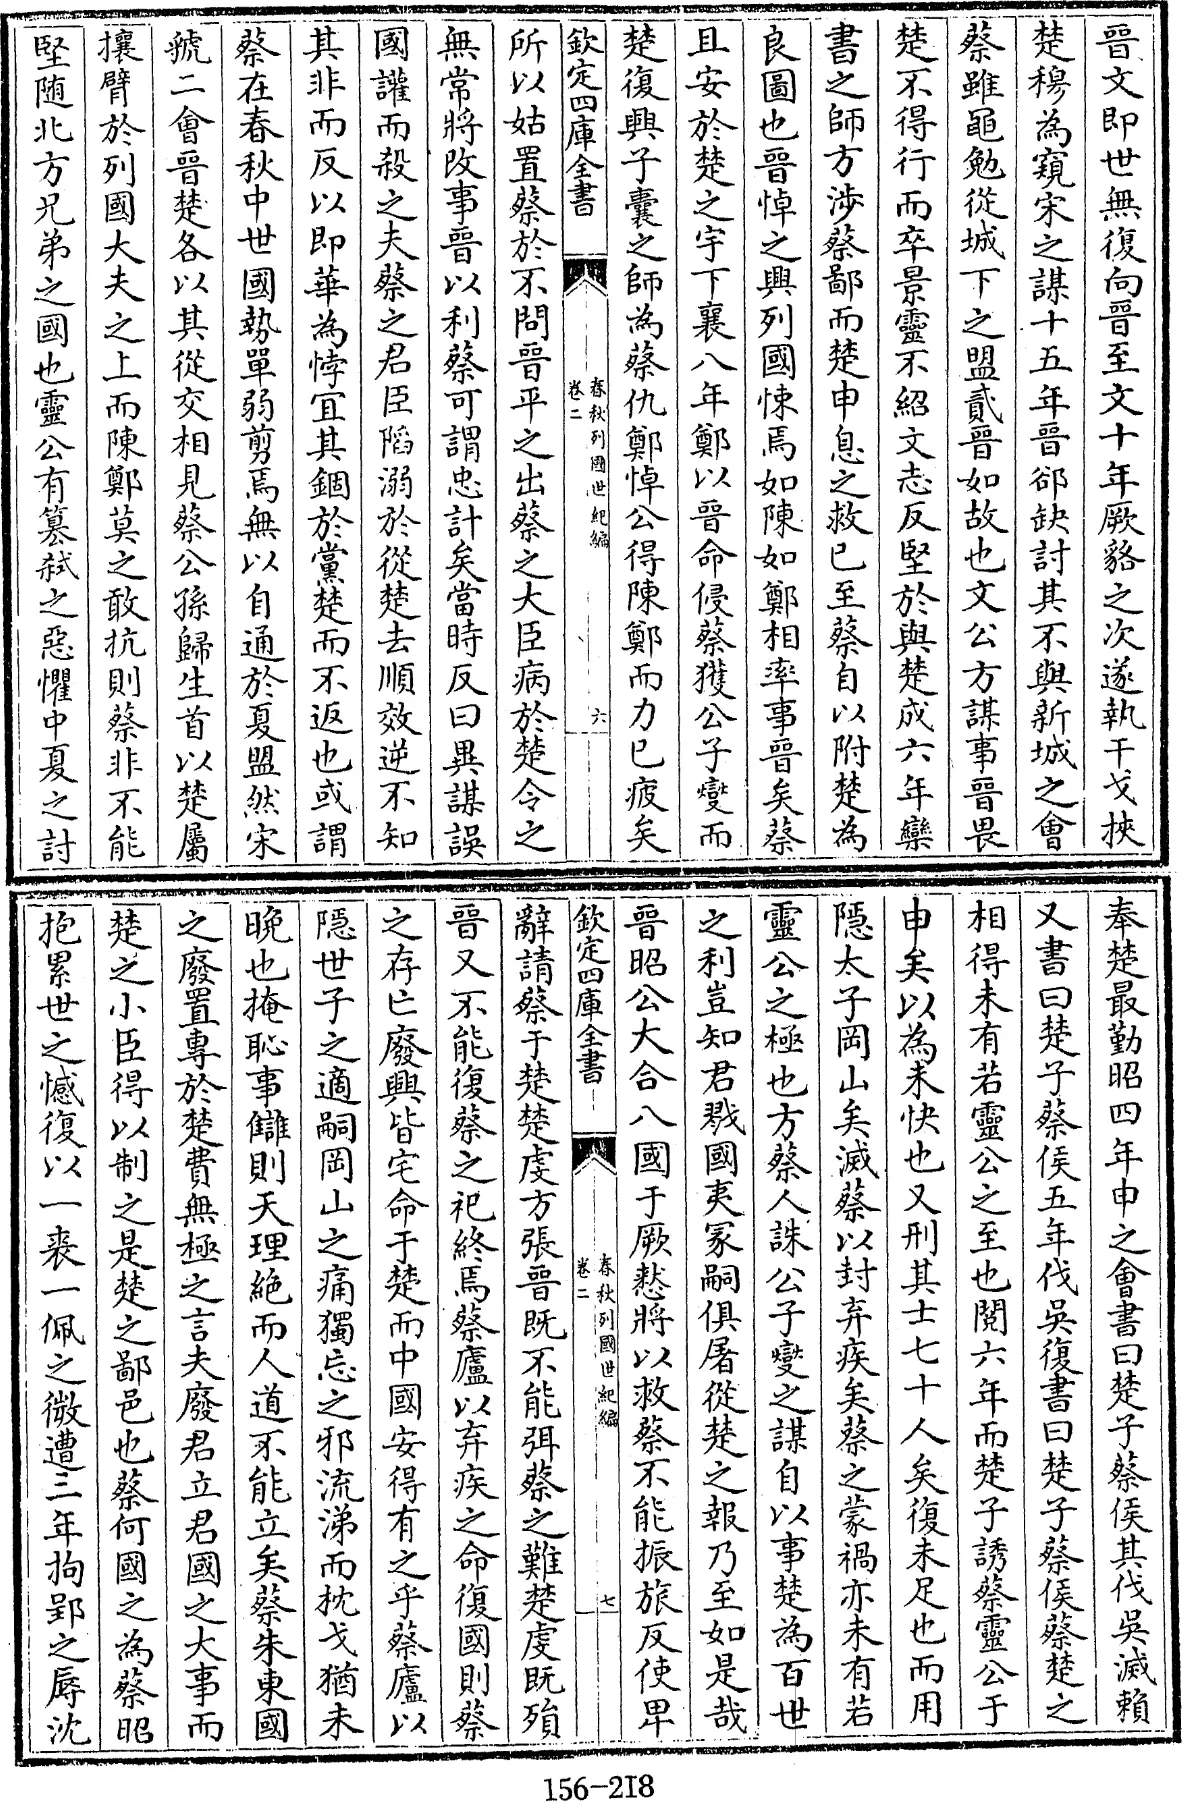 晉文即世無復向晉至文十年厥貉之次遂執干戈挾
楚穆為窺宋之謀十五年晉郤缺討其不與新城之會
蔡雖黽勉從城下之盟貳晉如故也文公方謀事晉畏
楚不得行而卒景靈不紹文志反堅於與楚成六年欒
書之師方涉蔡鄙而楚申息之救已至蔡自以附楚為
良圖也晉悼之興列國悚焉如陳如鄭相率事晉矣蔡
且安於楚之宇下襄八年鄭以晉命侵蔡獲公子燮而
楚復興子囊之師為蔡仇鄭悼公得陳鄭而力已疲矣
欽定四庫全書
春秋列國世紀編
卷二
六
所以姑置蔡於不問晉平之出蔡之大臣病於楚令之
無常將改事晉以利蔡可謂忠計矣當時反曰異謀誤
國讙而殺之夫蔡之君臣陷溺於從楚去順效逆不知
其非而反以即華為悖宜其錮於黨楚而不返也或謂
蔡在春秋中世國勢單弱剪焉無以自通於夏盟然宋
虢二會晉楚各以其從交相見蔡公孫歸生首以楚屬
攘臂於列國大夫之上而陳鄭莫之敢抗則蔡非不能
堅随北方兄弟之國也靈公有篡弑之惡懼中夏之討
奉楚最勤昭四年申之會書曰楚子蔡侯其伐吳滅賴
又書曰楚子蔡侯五年伐吳復書曰楚子蔡侯蔡楚之
相得未有若靈公之至也閱六年而楚子誘蔡靈公于
申矣以為未快也又刑其士七十人矣復未足也而用
隱太子岡山矣滅蔡以封弃疾矣蔡之蒙禍亦未有若
靈公之極也方蔡人誅公子燮之謀自以事楚為百世
之利豈知君戮國夷冢嗣俱屠從楚之報乃至如是哉
晉昭公大合八國于厥憖將以救蔡不能振旅反使卑
欽定四庫全書
春秋列國世紀編
卷二
七
辭請蔡于楚楚虔方張晉既不能弭蔡之難楚虔既殞
晉又不能復蔡之祀終焉蔡廬以弃疾之命復國則蔡
之存亡廢興皆宅命于楚而中國安得有之乎蔡廬以
隱世子之適嗣岡山之痛獨忘之邪流涕而枕戈猶未
晚也掩恥事讎則天理絕而人道不能立矣蔡朱東國
之廢置專於楚費無極之言夫廢君立君國之大事而
楚之小臣得以制之是楚之鄙邑也蔡何國之為蔡昭
抱累世之憾復以一裘一佩之微遭三年拘郢之辱沈
156-218